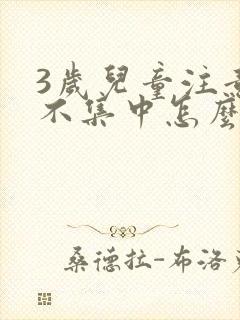 3歲兒童注
不集中怎麼
桑德拉-布洛